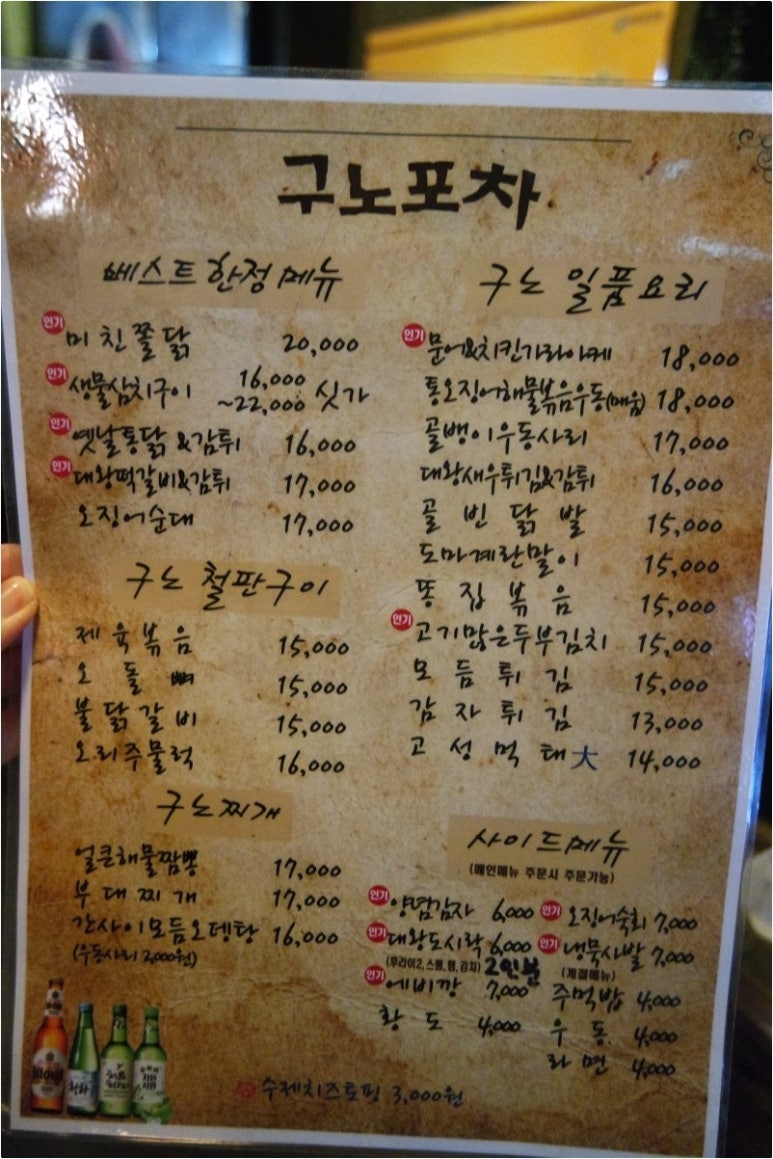 구노포차
베스트 한정 메뉴
인기 미친쫄닭 20,000
인기 생물삼치구이 16,000 ~22,000 싯가
인기 옛날통닭&감튀 16,000
인기 대왕떡갈비&감튀 17,000
오징어순대 17,000
구노 철판구이
제육볶음 15,000
오돌뼈 15,000
불닭갈비 15,000
오리주물럭 16,000
구노찌개
얼큰해물짬뽕 17,000
부대찌개 17,000
간사이모듬오뎅탕 16,000
(우동사리 2,000원)
구노 일품요리
인기 문어&치킨가라아께 18,000
통오징어해물볶음우동(매움) 18,000
골뱅이우동사리 17,000
대왕새우튀김&감튀 16,000
골빈닭발 15,000
도마계란말이 15,000
똥집볶음 15,000
인기 고기많은두부김치 15,000
모듬튀김 15,000
감자튀김 13,000
고성먹태大 14,000
사이드메뉴
(메인메뉴 주문시 주문가능)
인기 양념감자 6,000
인기 대왕도시락 6,000
(후라이2, 스팸, 햄, 김치) 2인분
인기 에비깡 7,000
황도 4,000
인기 오징어숙회 7,000
인기 냉묵사발 7,000
(계절메뉴)
주먹밥 4,000
우동 4,000
라면 4,000
수제치즈토핑 3,000원